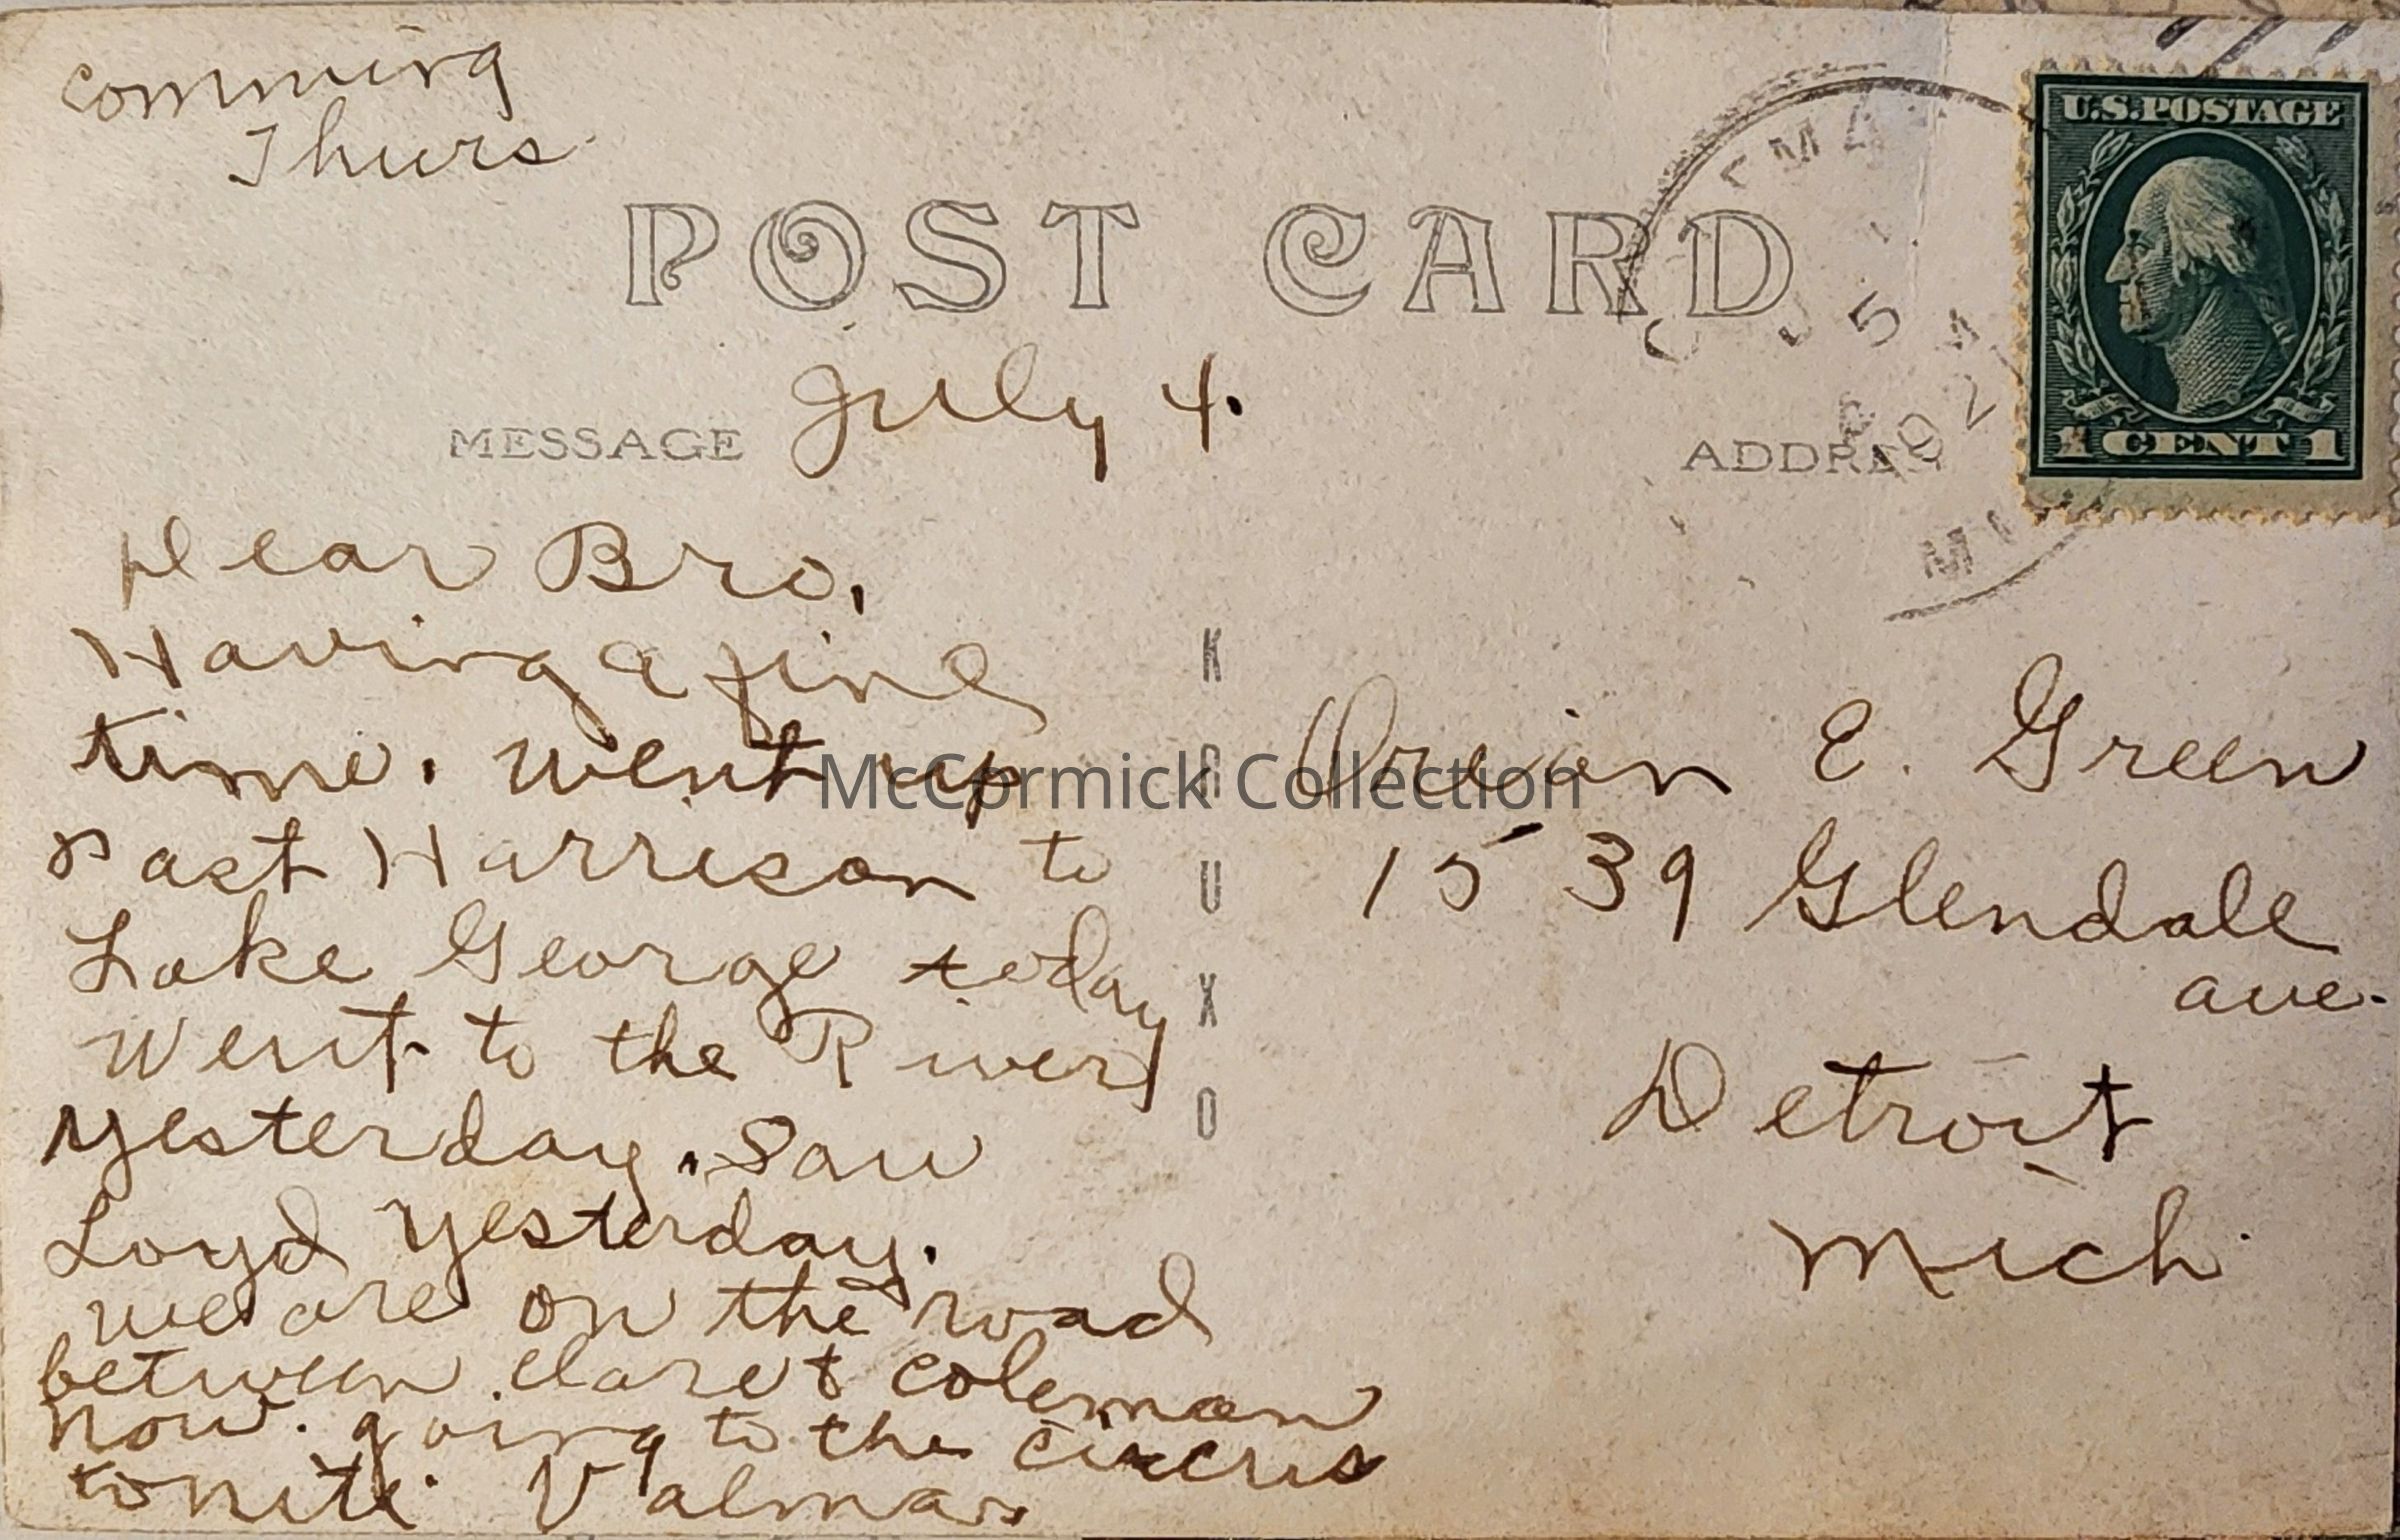 comming
Thurs.
POST CARD
July 4.
MESSAGE
ADDRESS
U.S. POSTAGE
1 CENT 1
Dear Bro,
Having a fine
time. Went up
past Harrison to
Lake George today
Went to the River
yesterday. Saw
Loyd yesterday.
we are on the road
between clare & coleman
now. going to the circus
tonite. Valma
KRUXO
Orvian E. Green
1539 Glendale
ave.
Detroit
Mich.
McCormick Collection